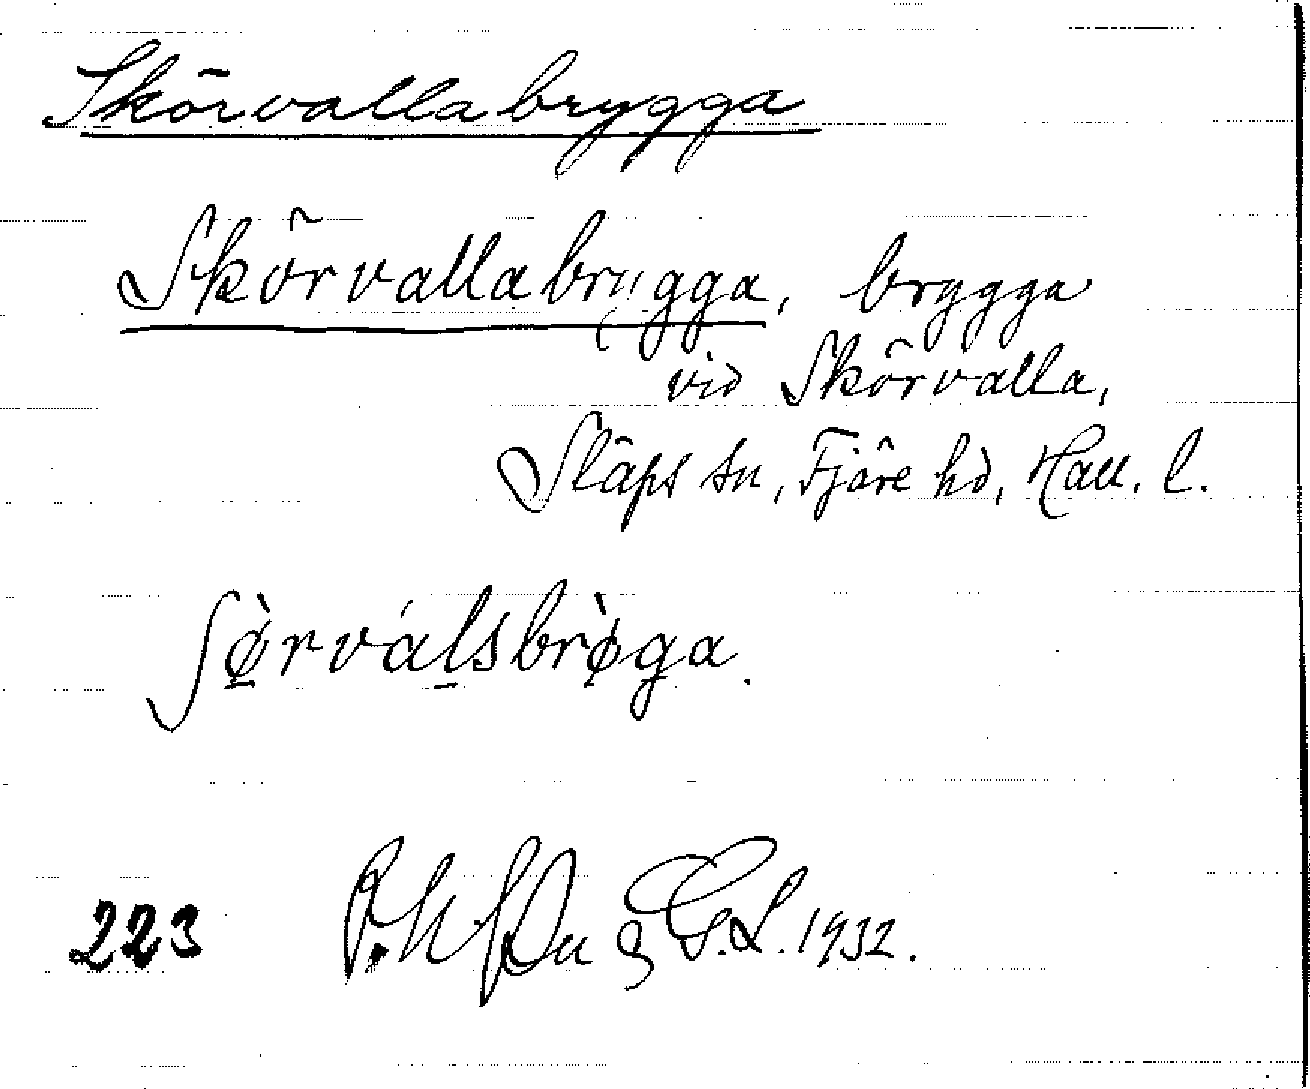 Skörvallabrygga
Skörvallabrygga, brygga
vid Skörvalla,
Släps sn, Fjäre hd, Hall. l.
ʃø̀rválsbrø̀ga.
223 1932.